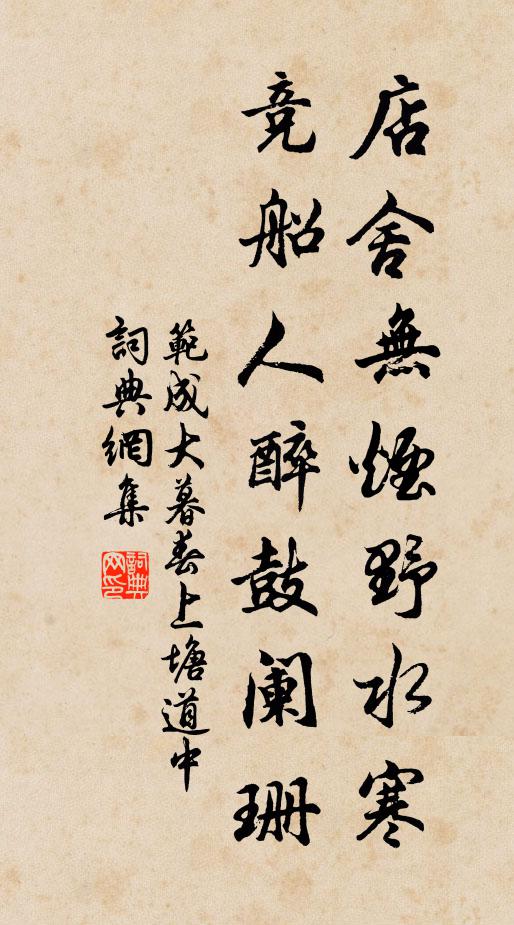 店舍無煙野水寒
竞船人醉鼓阑珊
範成大暮春上塘道中
詞典網集
詞典网印